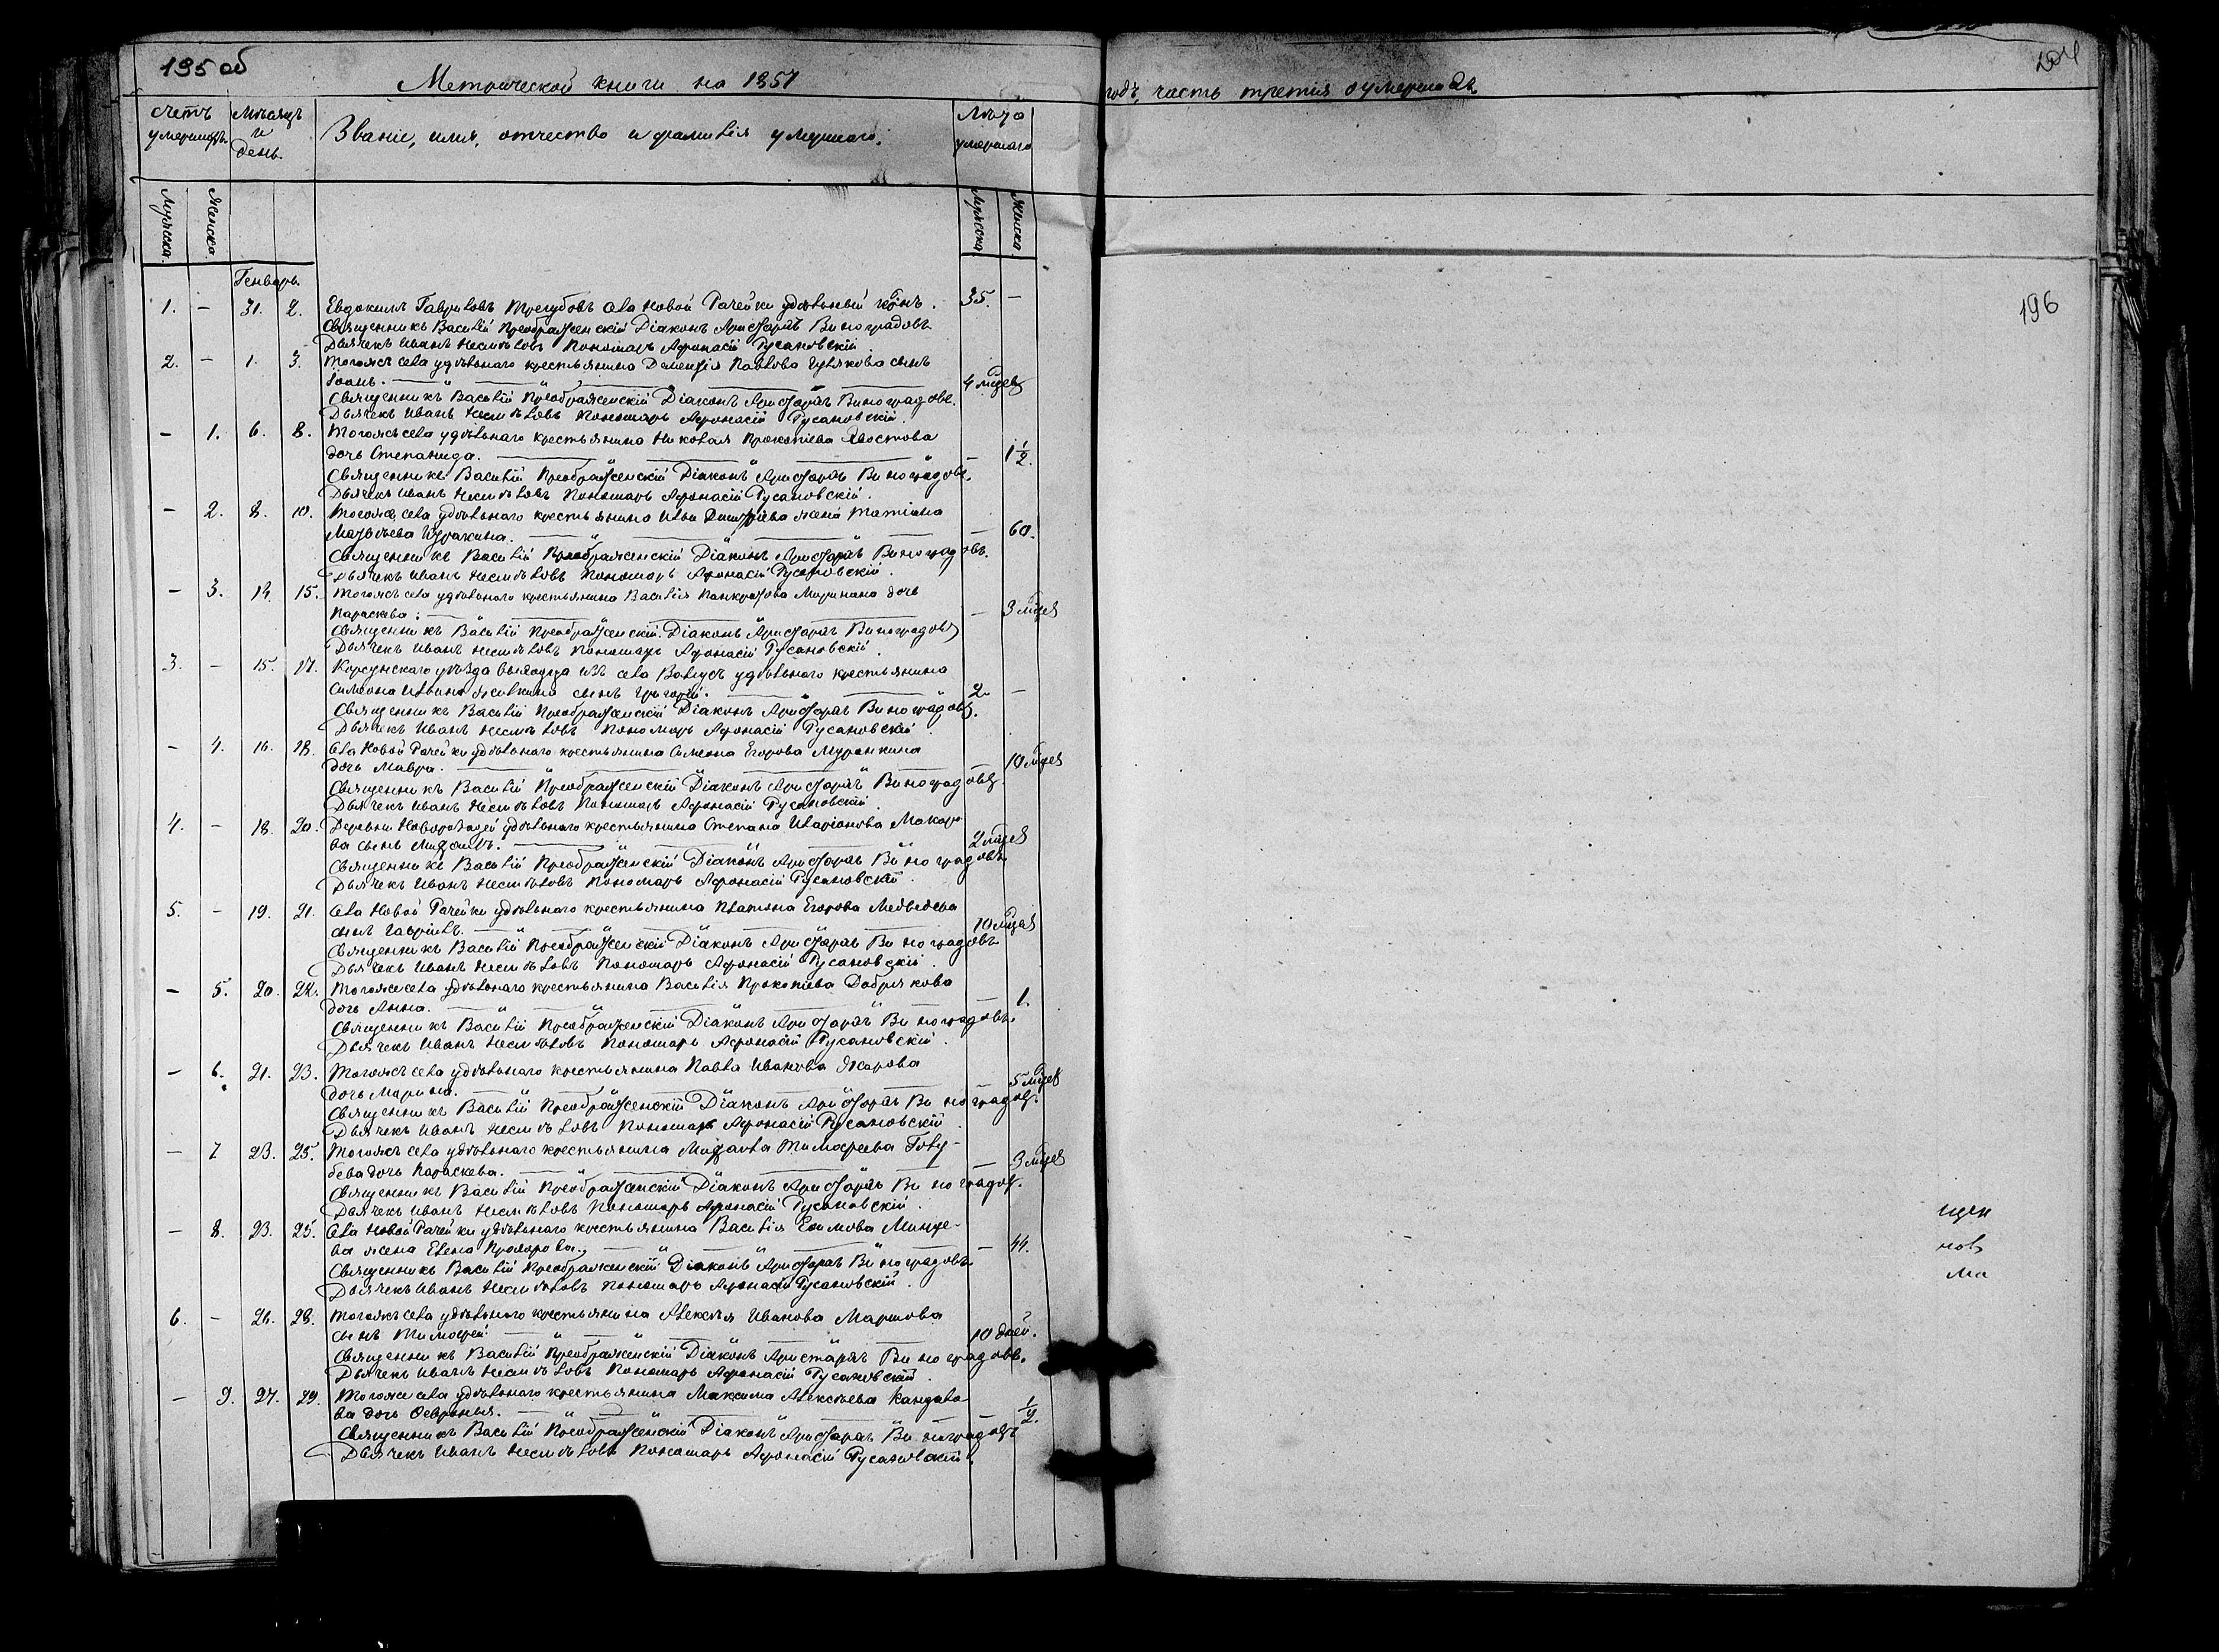 195 об
204
Метрической книги на 1851
годъ, часть третія о умершихъ
счетъ умершихъ.
Мѣсяцъ и день.
Званіе, имя, отчество и фамилія умершаго.
Лѣта умершаго
Мужеска.
Женска.
Мужеска
Женска
Генварь.
196
1. — 31. 2. Евдокимъ Гавриловъ Трегубовъ села Новой Рачейки удѣльный кр-нъ. 35. —
Священникъ Василій Преображенскій Діаконъ Аристархъ Виноградовъ
Дьячекъ Иванъ Несмѣловъ Пономарь Афонасій Русановскій
2. — 1. 3. Тогожъ села удѣльнаго крестьянина Дементія Павлова сынъ
Іоанъ. 4 мѣсец
Священникъ Василій Преображенскій Діаконъ Аристархъ Виноградовъ.
Дьячекъ Иванъ Несмѣловъ Пономарь Афонасій Русановскій.
— 1. 6. 8. Тогожъ села удѣльнаго крестьянина Николая Прокопіева Хвостова
дочь Степанида. — 1 1/2.
Священникъ Василій Преображенскій Діаконъ Аристархъ Виноградовъ.
Дьячекъ Иванъ Несмѣловъ Пономарь Афонасій Русановскій.
— 2. 8. 10. Тогоже села удѣльнаго крестьянина Ильи жена Татіана
Матвѣева — 60.
Священникъ Василій Преображенскій Діаконъ Аристархъ Виноградовъ.
Дьячекъ Иванъ Несмѣловъ Пономарь Афонасій Русановскій.
— 3. 14. 15. Тогожъ села удѣльнаго крестьянина Василія Панкратова дочь
Параскева. — 3 мѣсец
Священникъ Василій Преображенскій. Діаконъ Аристархъ Виноградовъ
Дьячекъ Иванъ Несмѣловъ Пономарь Афонасій Русановскій.
3. — 15. 17. Корсунскаго уѣзда выходца изъ села удѣльнаго крестьянина
Симіона сынъ Григорій. 2. —
Священникъ Василій Преображенскій Діаконъ Аристархъ Виноградовъ.
Дьячекъ Иванъ Несмѣловъ Пономарь Афонасій Русановскій.
— 4. 16. 18. Села Новой Рачейки удѣльнаго крестьянина Симеона Егорова Муранкина
дочь Мавра. — 10 мѣсец
Священникъ Василій Преображенскій Діаконъ Аристархъ Виноградовъ
Дьячекъ Иванъ Несмѣловъ Пономарь Афонасій Русановскій.
4. — 18. 20. Деревни удѣльнаго крестьянина Степана Иларіонова Макаро-
ва сынъ Михаилъ. 2 мѣсец
Священникъ Василій Преображенскій Діаконъ Аристархъ Виноградовъ
Дьячекъ Иванъ Несмѣловъ Пономарь Афонасій Русановскій.
5. — 19. 21. Села Новой Рачейки удѣльнаго крестьянина Платона Егорова Медведева
сынъ Гавріилъ. 10 мѣсец
Священникъ Василій Преображенскій Діаконъ Аристархъ Виноградовъ
Дьячекъ Иванъ Несмѣловъ Пономарь Афонасій Русановскій.
— 5. 20. 22. Тогоже села удѣльнаго крестьянина Василія Прокопіева Добрякова
дочь Анна. — 1.
Священникъ Василій Преображенскій Діаконъ Аристархъ Виноградовъ.
Дьячекъ Иванъ Несмѣловъ Пономарь Афонасій Русановскій.
— 6. 21. 23. Тогожъ села удѣльнаго крестьянина Павла Иванова Жарова
дочь Марина. — 5 мѣсец
Священникъ Василій Преображенскій Діаконъ Аристархъ Виноградовъ.
Дьячекъ Иванъ Несмѣловъ Пономарь Афонасій Русановскій
— 7 23. 25. Тогожъ села удѣльнаго крестьянина Михаила Тимофеева Голу-
бева дочь Параскева. — 3 мѣсец
Священникъ Василій Преображенскій Діаконъ Аристархъ Виноградовъ.
Дьячекъ Иванъ Несмѣловъ Пономарь Афонасій Русановскій.
— 8. 23. 25. Села Новой Рачейки удѣльнаго крестьянина Василія Ефимова
ва жена Елена Прохорова. — 44.
Священникъ Василій Преображенскій Діаконъ Аристархъ Виноградовъ
Дьячекъ Иванъ Несмѣловъ Пономарь Афонасій Русановскій.
6. — 26. 28. Тогожъ села удѣльнаго крестьянина Алексѣя Иванова Маршова
сынъ Тимофей 10 дней.
Священникъ Василій Преображенскій Діаконъ Аристархъ Виноградовъ.
Дьячекъ Иванъ Несмѣловъ Пономарь Афонасій Русановскій.
— 9. 27. 29. Тогоже села удѣльнаго крестьянина Максима Алексѣева Кандало-
ва дочь Февронья. — 1/2.
Священникъ Василій Преображенскій Діаконъ Аристархъ Виноградовъ
Дьячекъ Иванъ Несмѣловъ Пономарь Афонасій Русановскій
щен
новъ
ма